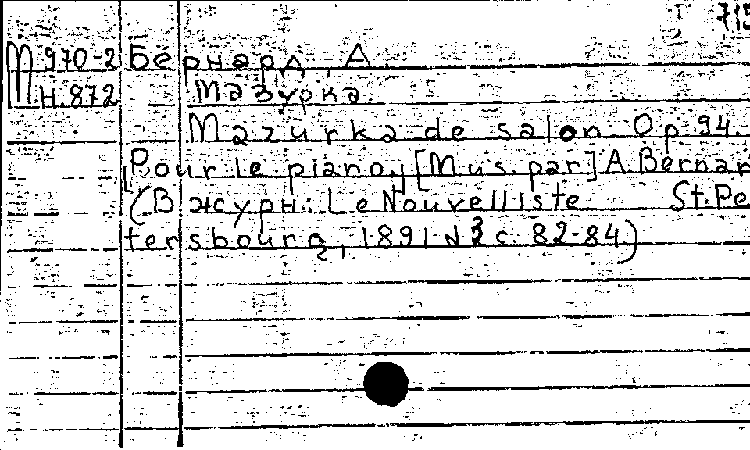 715
М 970-2 Бернард, А.
Н.872 Мазурка.
Mazurka de salon. Op 94.
Pour le piano, [Mus. par] A. Bernar
(В журн: Le Nouvelliste St. Pe
tersbourg, 1891 N 3 с. 82-84.)